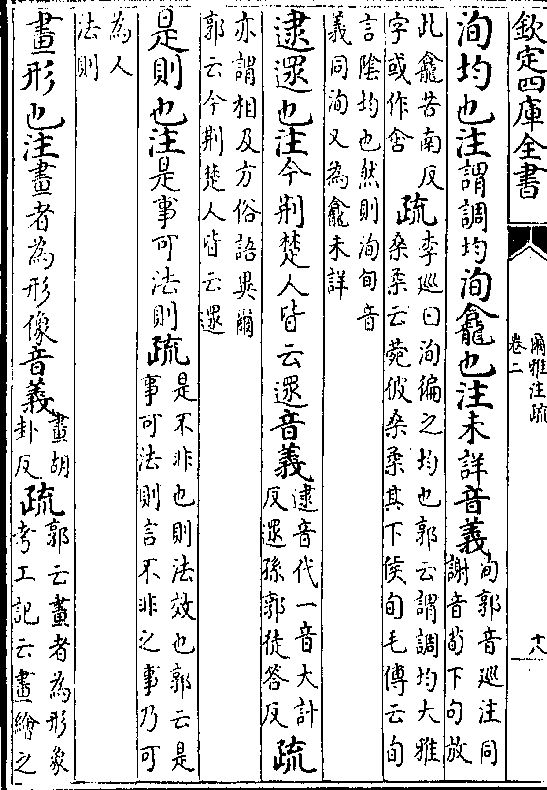 欽定四庫全書
爾雅注疏
卷二
十八
洵均也注謂調均洵龕也注未詳音義旬郭音巡注同
謝音荀下句放
此龕苦南反
字或作含
疏李巡曰洵徧之均也郭云謂調均大雅
桑柔云菀彼桑柔其下侯旬毛傳云旬
言陰均也然則洵旬音
義同洵又為龕未詳
逮遝也注今荆楚人皆云遝音義逮音代一音大計
反遝孫郭徒答反
疏
亦謂相及方俗語異爾
郭云今荆楚人皆云遝
是則也注是事可法則疏是不非也則法效也郭云是
事可法則言不非之事乃可
為人
法則
畫形也注畫者為形像音義畫胡
卦反
疏郭云畫者為形象
考工記云畫繪之